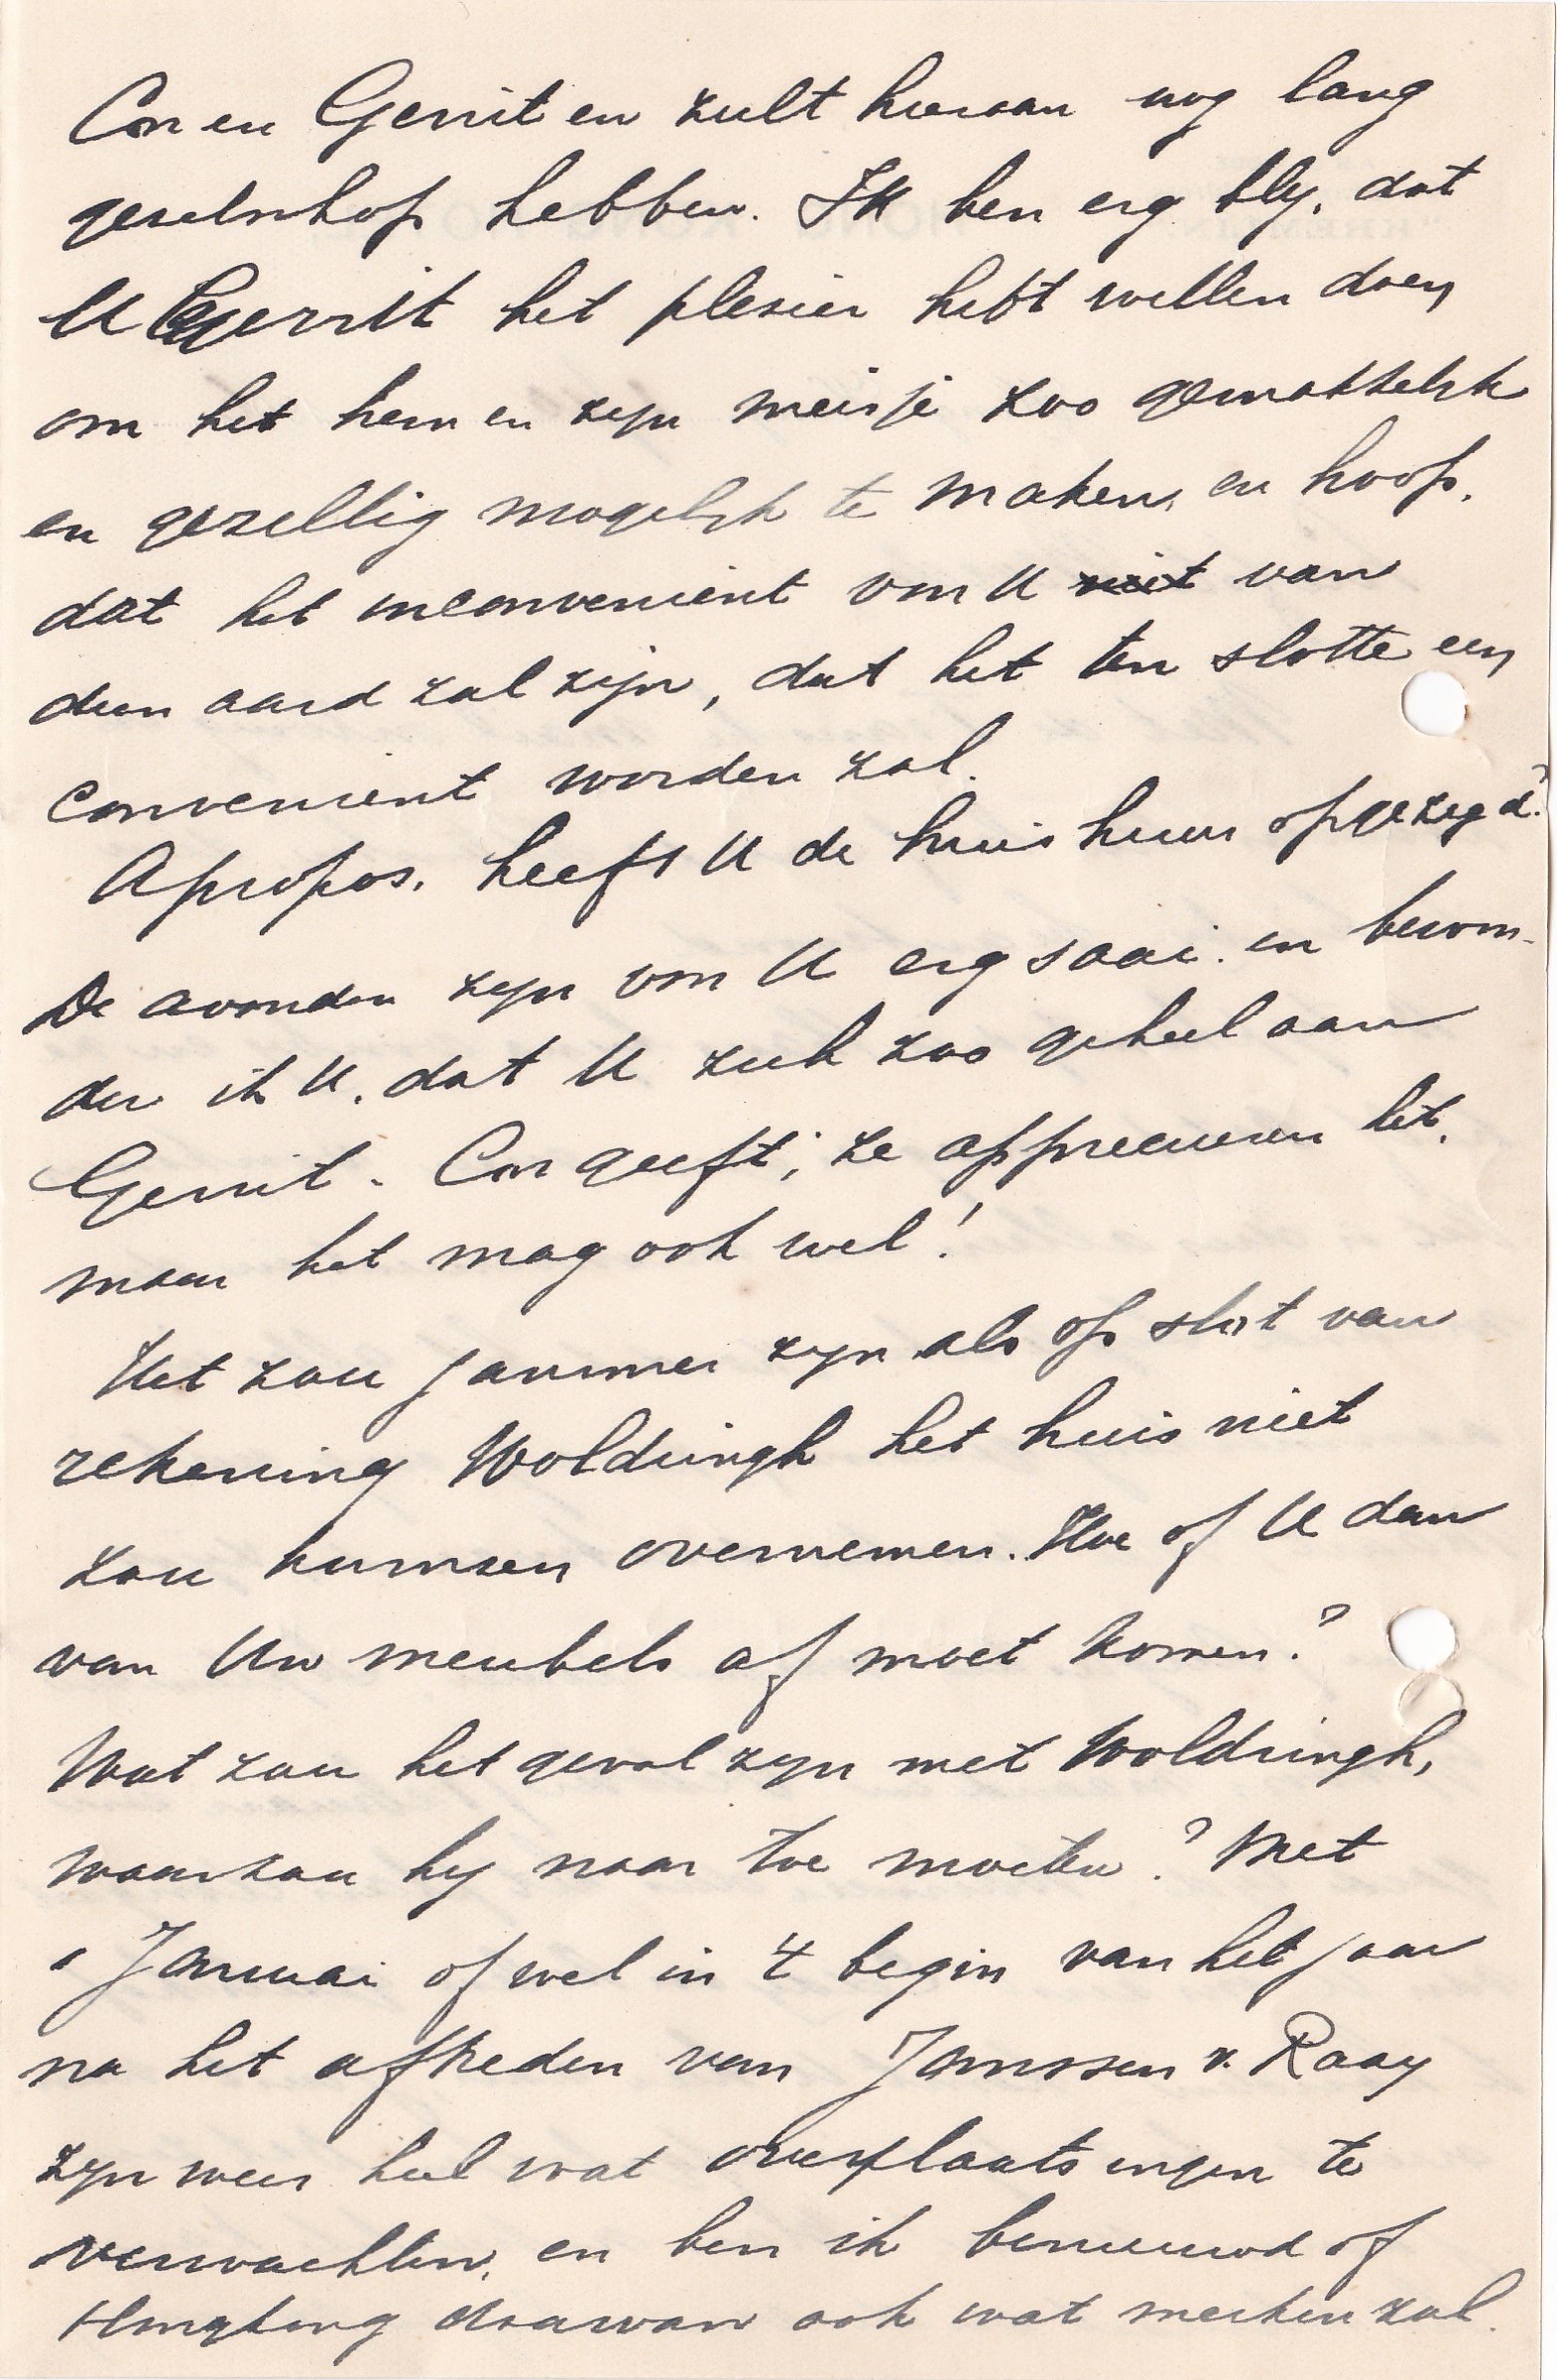 Cor en Gerrit en zult hieraan nog lang
gezelschap hebben. Ik ben erg bly, dat
U Gerrit het plesier hebt willen doen
om het hem en zyn meisje zoo gemakkelyk
en gezellig mogelyk te maken, en hoop,
dat het inconvenient voor U van
dien aard zal zijn, dat het ten slotte een
convenient worden zal.
Apropos, heeft U de huishuur opgezegd?
De avonden zyn voor U erg saai. en bewon-
der ik U, dat U zich zoo geheel aan
Gerrit - Cor geeft; ze apprecieeren het,
maar het mag ook wel!
Het zou jammer zyn als op slot van
rekening Woldringh het huis niet
zou kunnen overnemen. Hoe of U dan
van Uw meubels af moet komen?
Wat zou het geval zyn met Woldringh,
waar zou hy naar toe moeten? Met
1 Januai of wel in 't begin van het jaar
na het aftreden van Janssen v. Raay
zyn weer heel wat overplaatsingen te
verwachten, en ben ik benieuwd of
Hongkong daarvan ook wat merken zal.